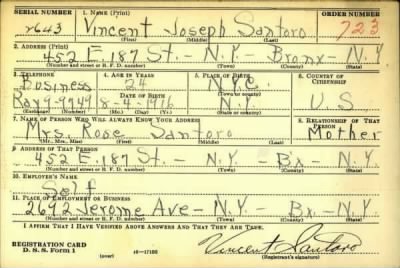 SERIAL NUMBER 1. NAME (Print) ORDER NUMBER
2643 Vincent Joseph Santoro 723
(First) (Middle) (Last)
2. ADDRESS (Print)
452 E. 187 St. - N.Y. - Bronx - N.Y
(Number and street or R. F. D. number) (Town) (County) (State)
3. TELEPHONE 4. AGE IN YEARS 5. PLACE OF BIRTH 6. COUNTRY OF CITIZENSHIP
Business 24 N.Y.C.
DATE OF BIRTH (Town or county)
Ray 9-9749 8-4-1916 N.Y. U.S.
(Exchange) (Number) (Mo.) (Day) (Yr.) (State or country)
7. NAME OF PERSON WHO WILL ALWAYS KNOW YOUR ADDRESS 8. RELATIONSHIP OF THAT PERSON
Mrs. Rose Santoro Mother
(Mr., Mrs., Miss) (First) (Middle) (Last)
9. ADDRESS OF THAT PERSON
452 E. 187 St. - N.Y. - Bx - N.Y.
(Number and street or R. F. D. number) (Town) (County) (State)
10. EMPLOYER'S NAME
Self
11. PLACE OF EMPLOYMENT OR BUSINESS
2692 Jerome Ave - N.Y. - Bx - N.Y
(Number and street or R. F. D. number) (Town) (County) (State)
I AFFIRM THAT I HAVE VERIFIED ABOVE ANSWERS AND THAT THEY ARE TRUE.
REGISTRATION CARD
D. S. S. Form 1 (over) 16-17105 Vincent Santoro
(Registrant's signature)